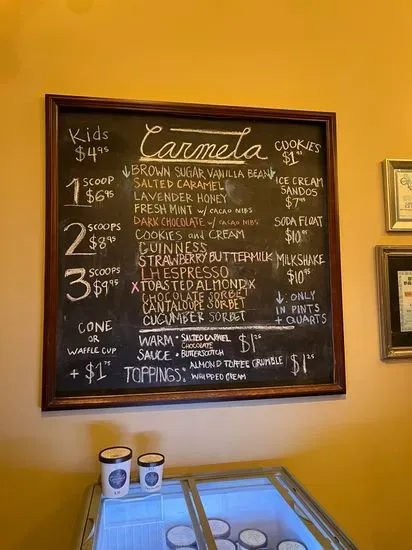 Carmela
Kids
$4⁹⁵
1 SCOOP
$6⁹⁵
2 SCOOPS
$8⁹⁵
3 SCOOPS
$9⁹⁵
CONE
OR
WAFFLE CUP
+ $1⁷⁵
↓BROWN SUGAR VANILLA BEAN↓
SALTED CARAMEL
LAVENDER HONEY
FRESH MINT w/ CACAO NIBS
DARK CHOCOLATE w/ CACAO NIBS
COOKIES AND CREAM
GUINNESS
STRAWBERRY BUTTERMILK
LH ESPRESSO
X TOASTED ALMOND X
CHOCOLATE SORBET
CANTALOUPE SORBET
CUCUMBER SORBET
WARM SAUCE
• SALTED CARAMEL
CHOCOLATE
• BUTTERSCOTCH
$1²⁵
TOPPINGS:
ALMOND TOFFEE CRUMBLE
WHIPPED CREAM
$1²⁵
COOKIES
ICE CREAM
SANDOS
SODA FLOAT
MILKSHAKE
↓ ONLY
IN PINTS
+ QUARTS